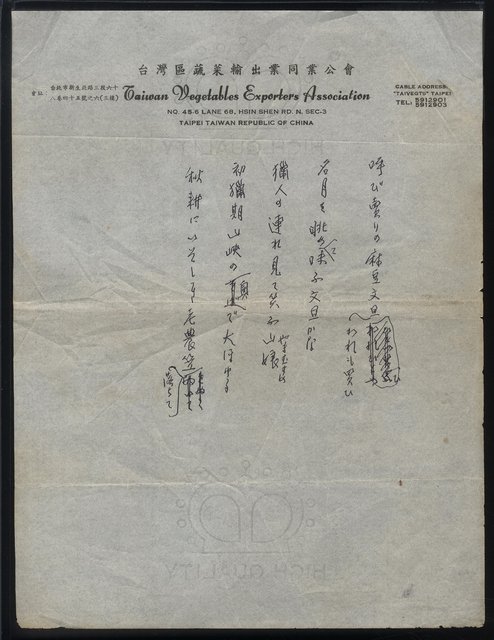 台灣區蔬菜輸出業同業公會
會址：台北市新生北路三段六十八巷四十五號之六(三樓)
Taiwan Vegetables Exporters Association
NO. 45-6 LANE 68, HSIN SHEN RD. N. SEC-3
TAIPEI TAIWAN REPUBLIC OF CHINA
CABLE ADDRESS
"TAIVEGTS" TAIPEI
TEL: 5912901
5912903
呼び賣りの麻豆文旦われも買ひ
名月を眺め味ふ文旦かな
獵人の連れ見て笑ふ山娘
初獵期山峽の で犬ほゆる
秋耕にいそしむ老農笠
HIGH QUALITY